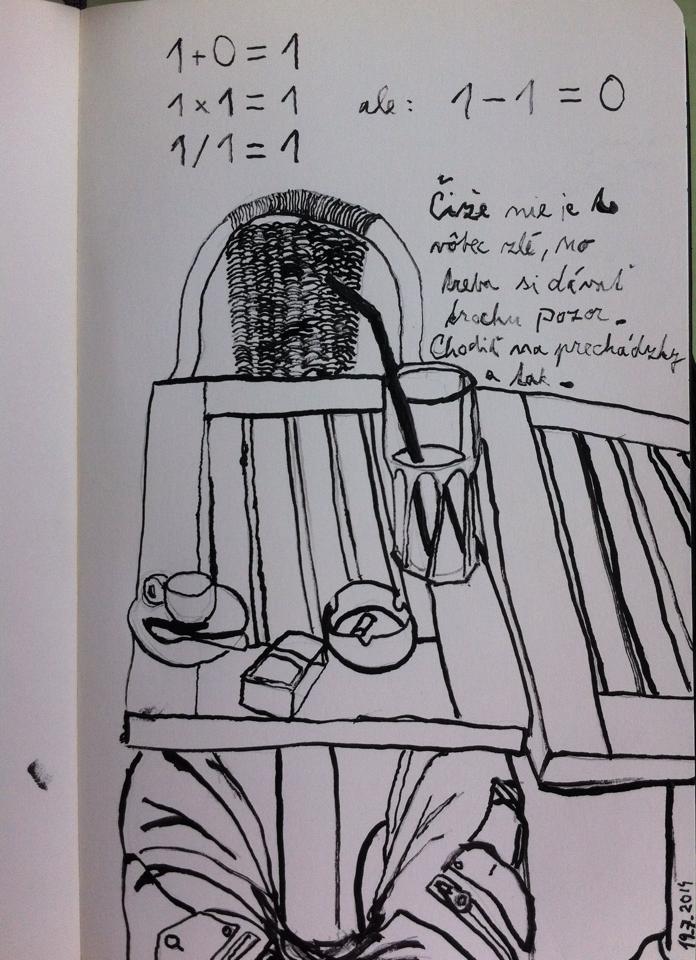 1+0=1
1×1=1 ale: 1-1=0
1/1=1
Čiže nie je to
vôbec zlé, no
treba si dávať
trochu pozor.
Chodiť na prechádzky
a tak.
19.7.2014